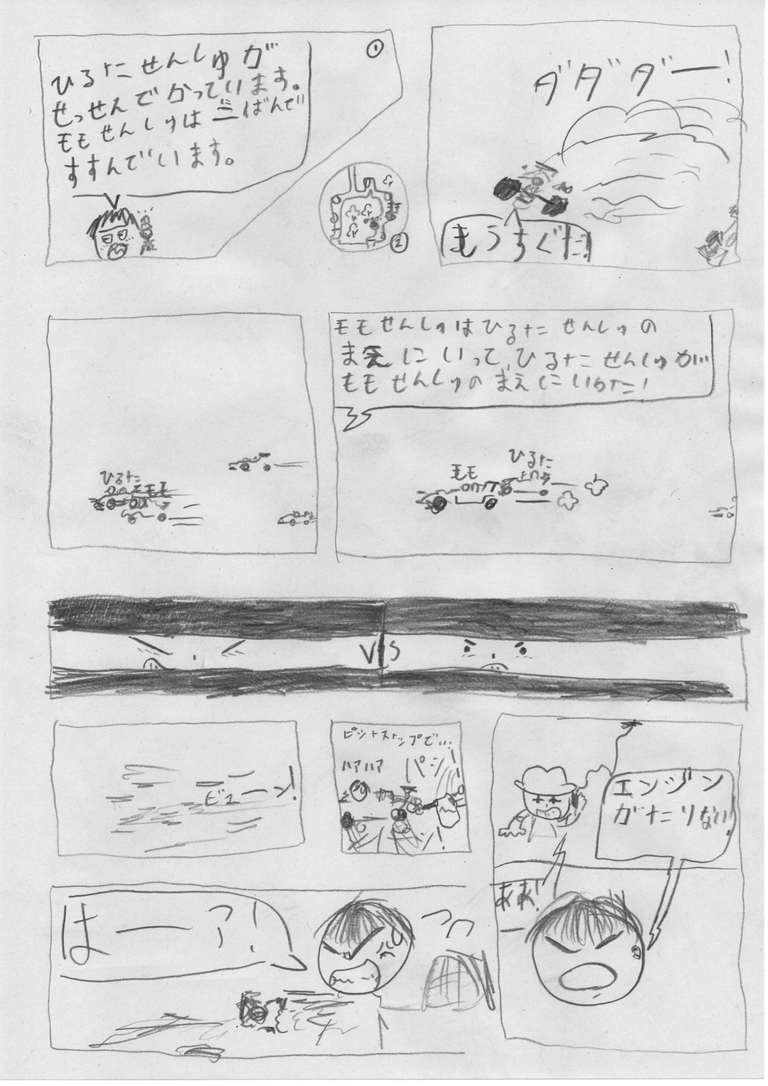 ひるたせんしゅが
せっせんでかっています。
モモせんしゅは三ばんで
すすんでいます。
①
②
ダダダー!
もうすぐだ!
ひるた
モモ
モモせんしゅはひるたせんしゅの
まえにいって、ひるたせんしゅが
モモせんしゅのまえにいった!
モモ
ひるた
VS
ビューン!
ピットストップで…
ハアハア
パシ
エンジン
がたりない!
ああ!
はーー?!